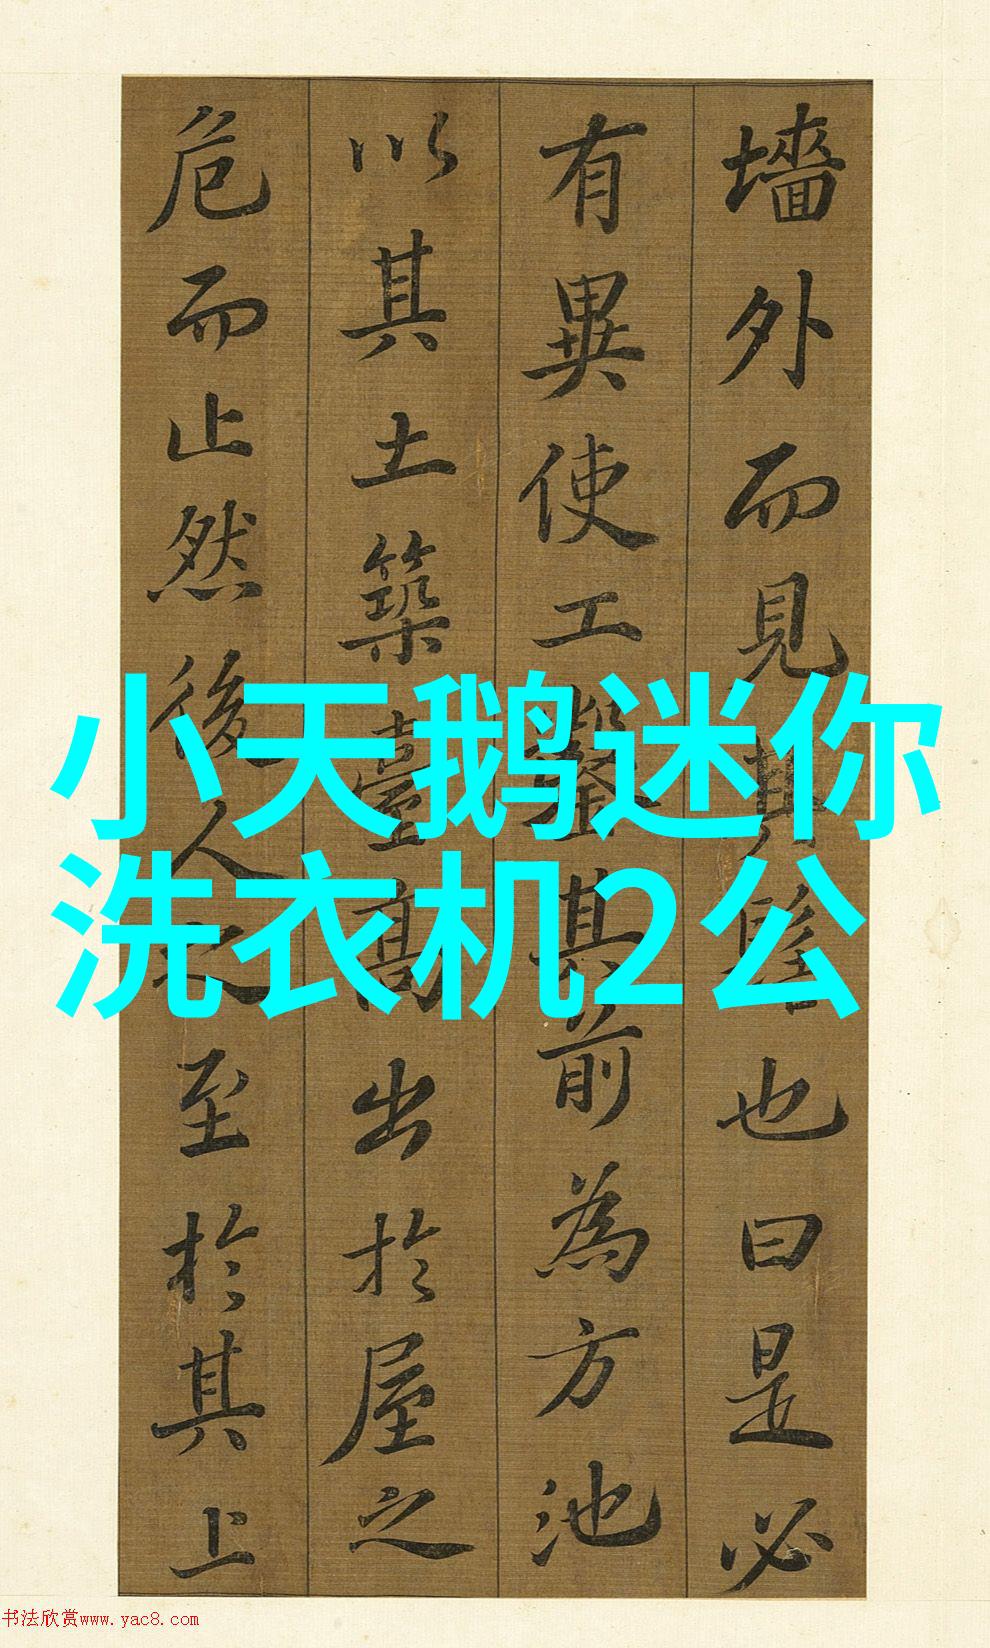 墻外而見其髻也曰是必
有異使工鑿其前為方池
以其土築臺高出於屋之
危而止然後人之至於其上
小天鹅迷你
洗衣机2公
书法欣赏www.yac8.com